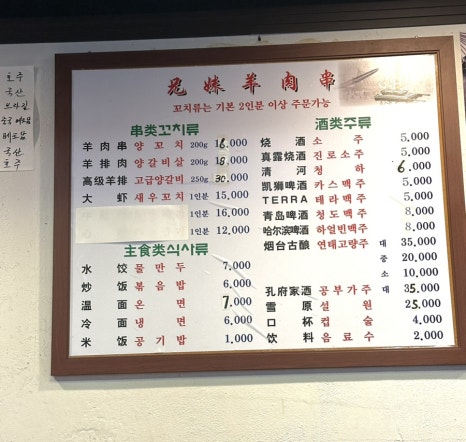 호주
국산
브라질
베트남
국산
호주
妹羊肉串
꼬치류는 기본 2인분 이상 주문가능
串类꼬치류
羊肉串 양꼬치 200g 16.000
羊排肉 양갈비살 200g 18.000
高级羊排 고급양갈비 250g 30.000
大虾 새우꼬치 1인분 15,000
1인분 16,000
1인분 12,000
主食类식사류
水饺 물만두 7,000
炒饭 볶음밥 6,000
温面 온면 7,000
冷面 냉면 6,000
米饭 공기밥 1,000
酒类주류
烧酒 소주 5,000
真露烧酒 진로소주 5,000
清河 청하 6.000
凯狮啤酒 카스맥주 5,000
TERRA 테라맥주 5,000
青岛啤酒 청도맥주 8,000
哈尔滨啤酒 하얼빈맥주 8,000
烟台古酿 연태고량주 대 35,000
중 20,000
소 10,000
孔府家酒 공부가주 대 35.000
雪原 설원 25,000
口杯 컵술 4,000
饮料 음료수 2,000